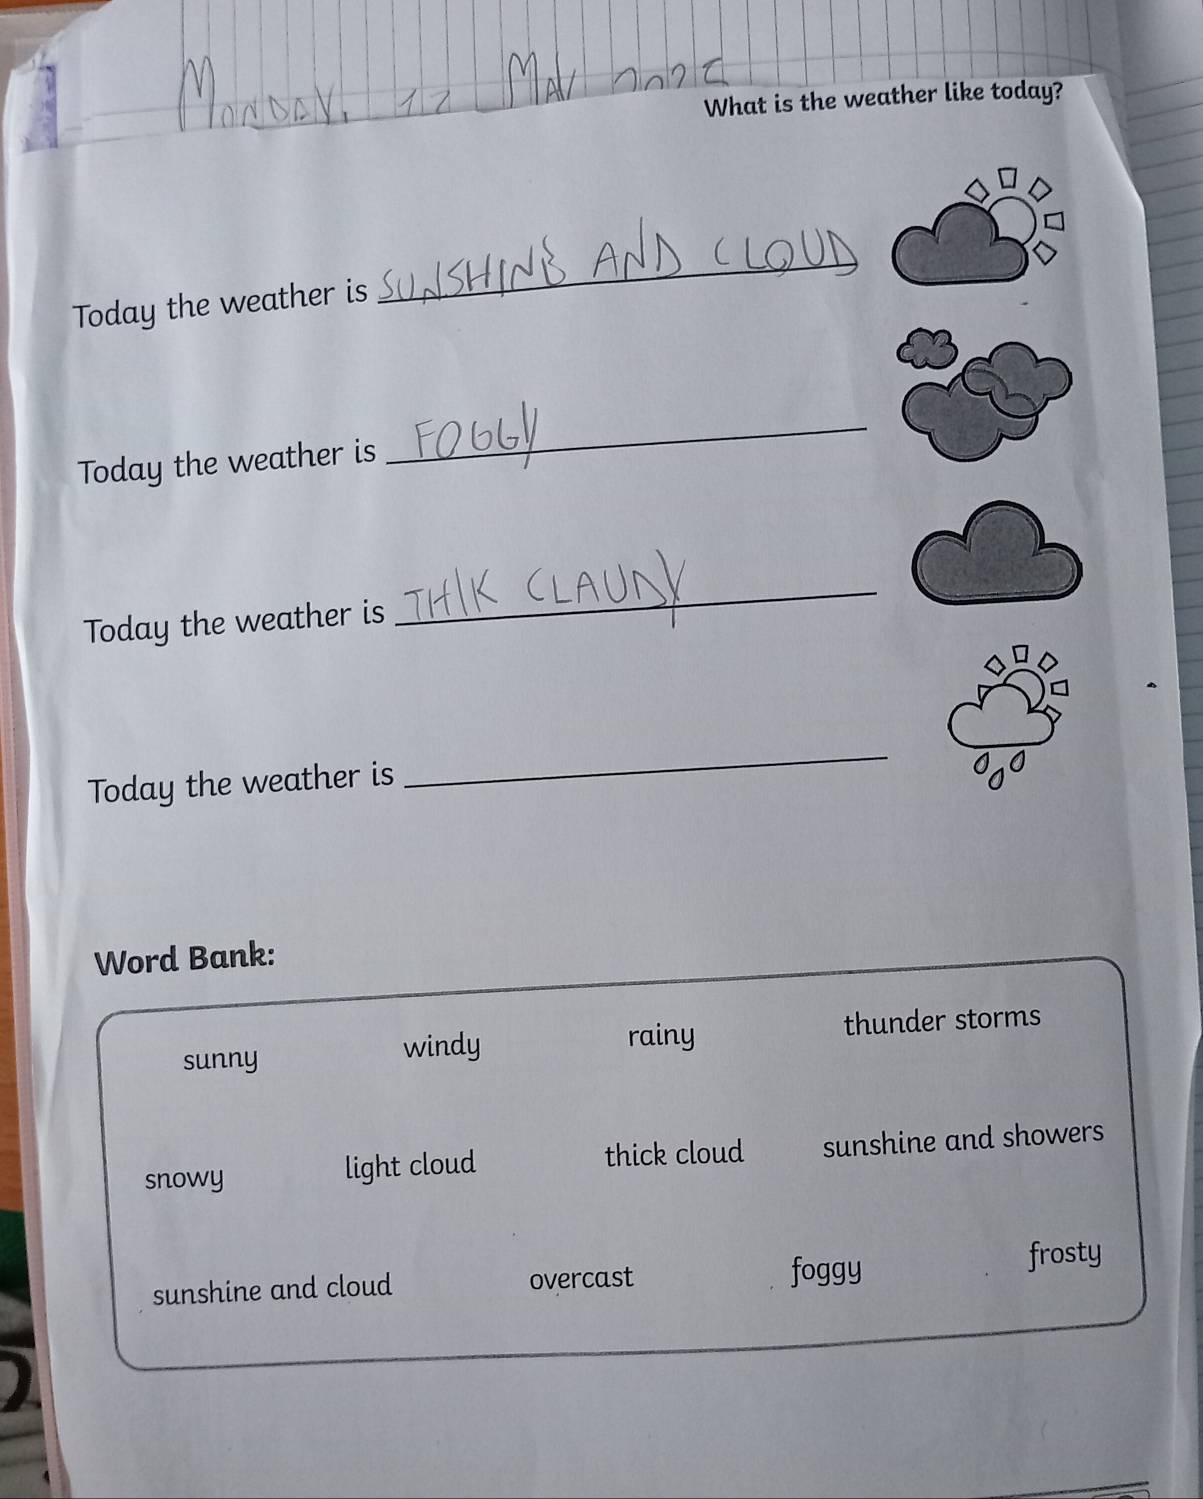 MONDAY, 12 MAY 2025
What is the weather like today?
Today the weather is SUNSHINE AND CLOUD
Today the weather is FOGGY
Today the weather is THIK CLAUDY
Today the weather is
Word Bank:
sunny windy rainy thunder storms
snowy light cloud thick cloud sunshine and showers
sunshine and cloud overcast foggy frosty